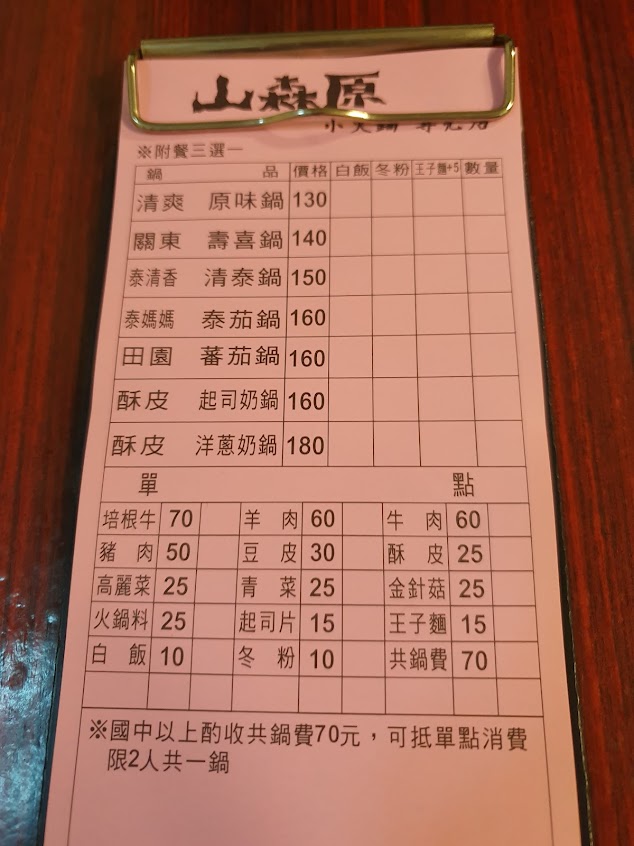 山森原
小火鍋
※附餐三選一
鍋 品 價格 白飯 冬粉 王子麵+5 數量
清爽 原味鍋 130
關東 壽喜鍋 140
泰清香 清泰鍋 150
泰媽媽 泰茄鍋 160
田園 蕃茄鍋 160
酥皮 起司奶鍋 160
酥皮 洋蔥奶鍋 180
單 點
培根牛 70 羊肉 60 牛肉 60
豬肉 50 豆皮 30 酥皮 25
高麗菜 25 青菜 25 金針菇 25
火鍋料 25 起司片 15 王子麵 15
白飯 10 冬粉 10 共鍋費 70
※國中以上酌收共鍋費70元，可抵單點消費
限2人共一鍋